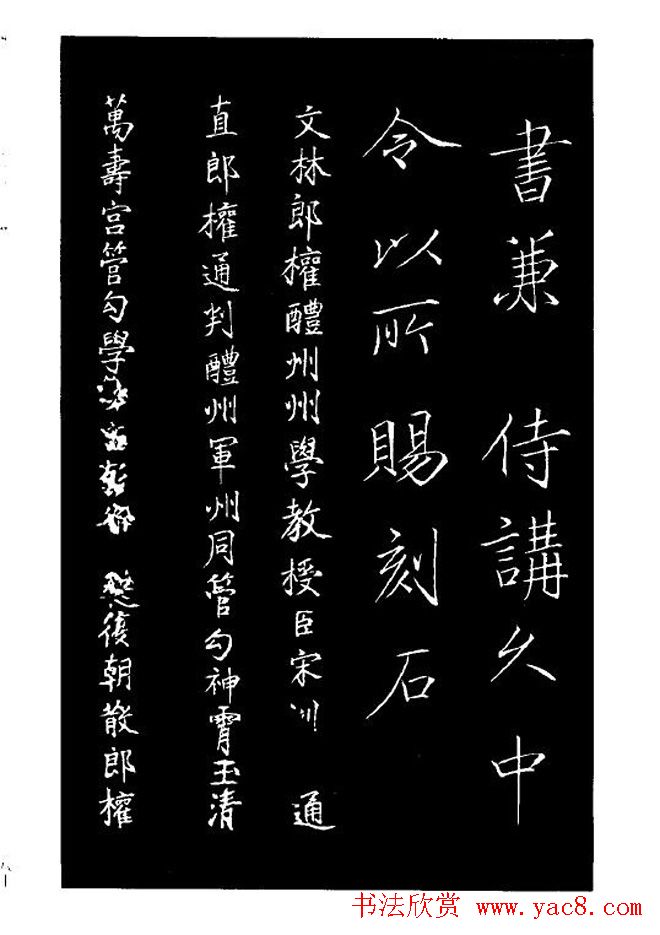 書兼 侍講久中
令以所賜刻石
文林郎權醴州州學教授臣宋 通
直郎權通判醴州軍州同管勾神霄玉清
萬壽宮管勾學 復朝散郎權
书法欣赏 www.yac8.com